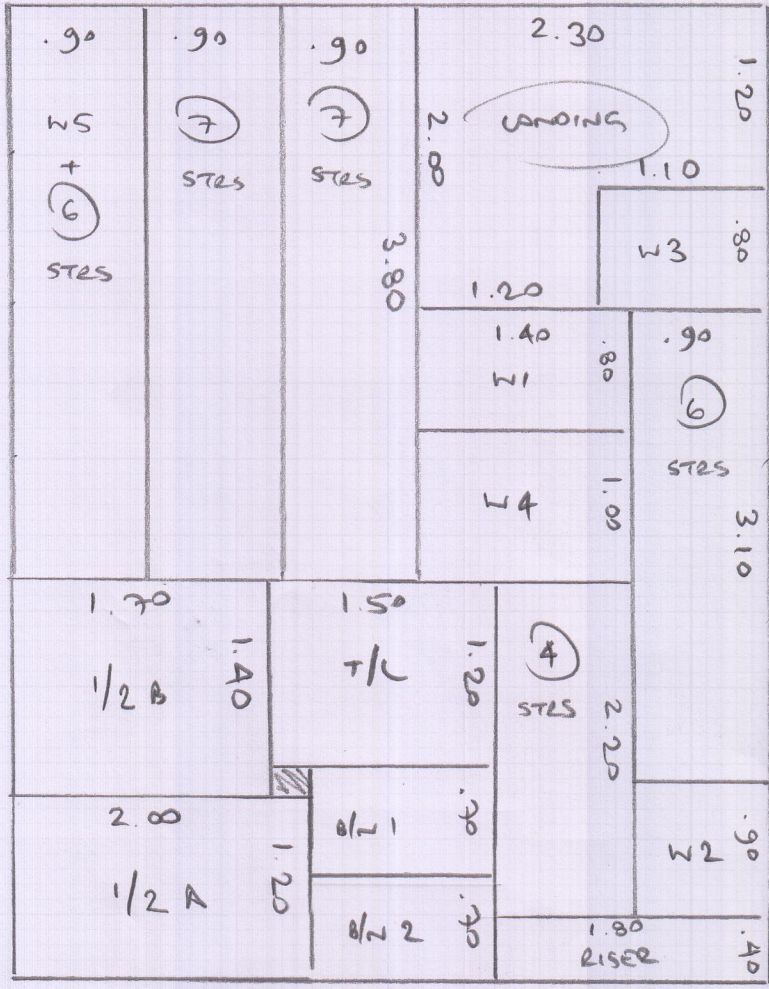 .90
W5
+
6
STRS
.90
7
STRS
.90
7
STRS
3.80
2.30
LANDING
1.20
2.00
1.10
W3
.80
1.20
1.40
W1
.80
W4
1.00
.90
6
STRS
3.10
1.70
1/2 B
1.40
1.50
T/L
1.20
4
STRS
2.20
2.00
1/2 A
1.20
B/N 1
.70
B/N 2
.70
W2
.90
1.80
RISER
.40